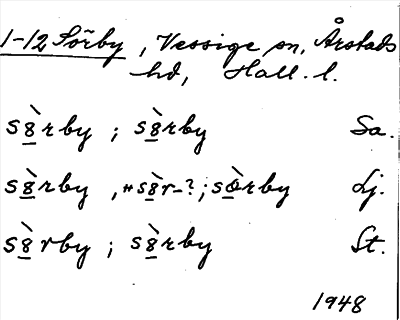 1-12 Sörby, Vessige sn, Årstads
hd, Hall. l.
s8̲̀rby ; s8̲̀rby Sa.
s8̲̀rby, "s8̲̀r-? ; sø̲̀rby Lj.
s8̲̀rby ; s8̲̀rby St.
1948